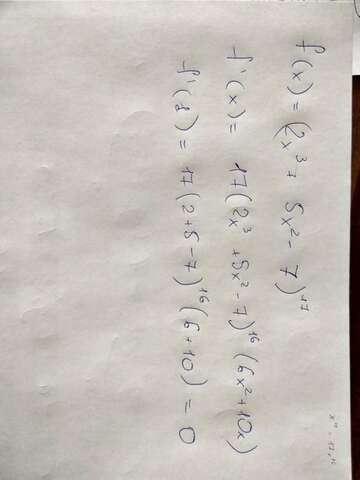 f(x) = (2x³ + 5x² - 7)¹⁷
f'(x) = 17(2x³ + 5x² - 7)¹⁶ (6x² + 10x)
f'(1) = 17(2+5-7)¹⁶ (6+10) = 0